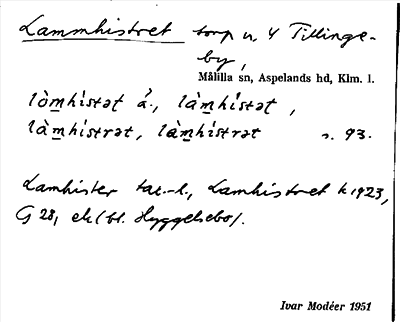 Lammhistret torp u. 4 Tillinge-
by,
Målilla sn, Aspelands hd, Klm. l.
lòm̲hi̍stət ä., làm̲hi̍stət,
làm̲hi̍strət, làm̲hi̍strət s. 93.
Lamhister tax.-l., Lamhistret k 1923,
G 28, ek (bl. Hyggelsebo).
Ivar Modéer 1951